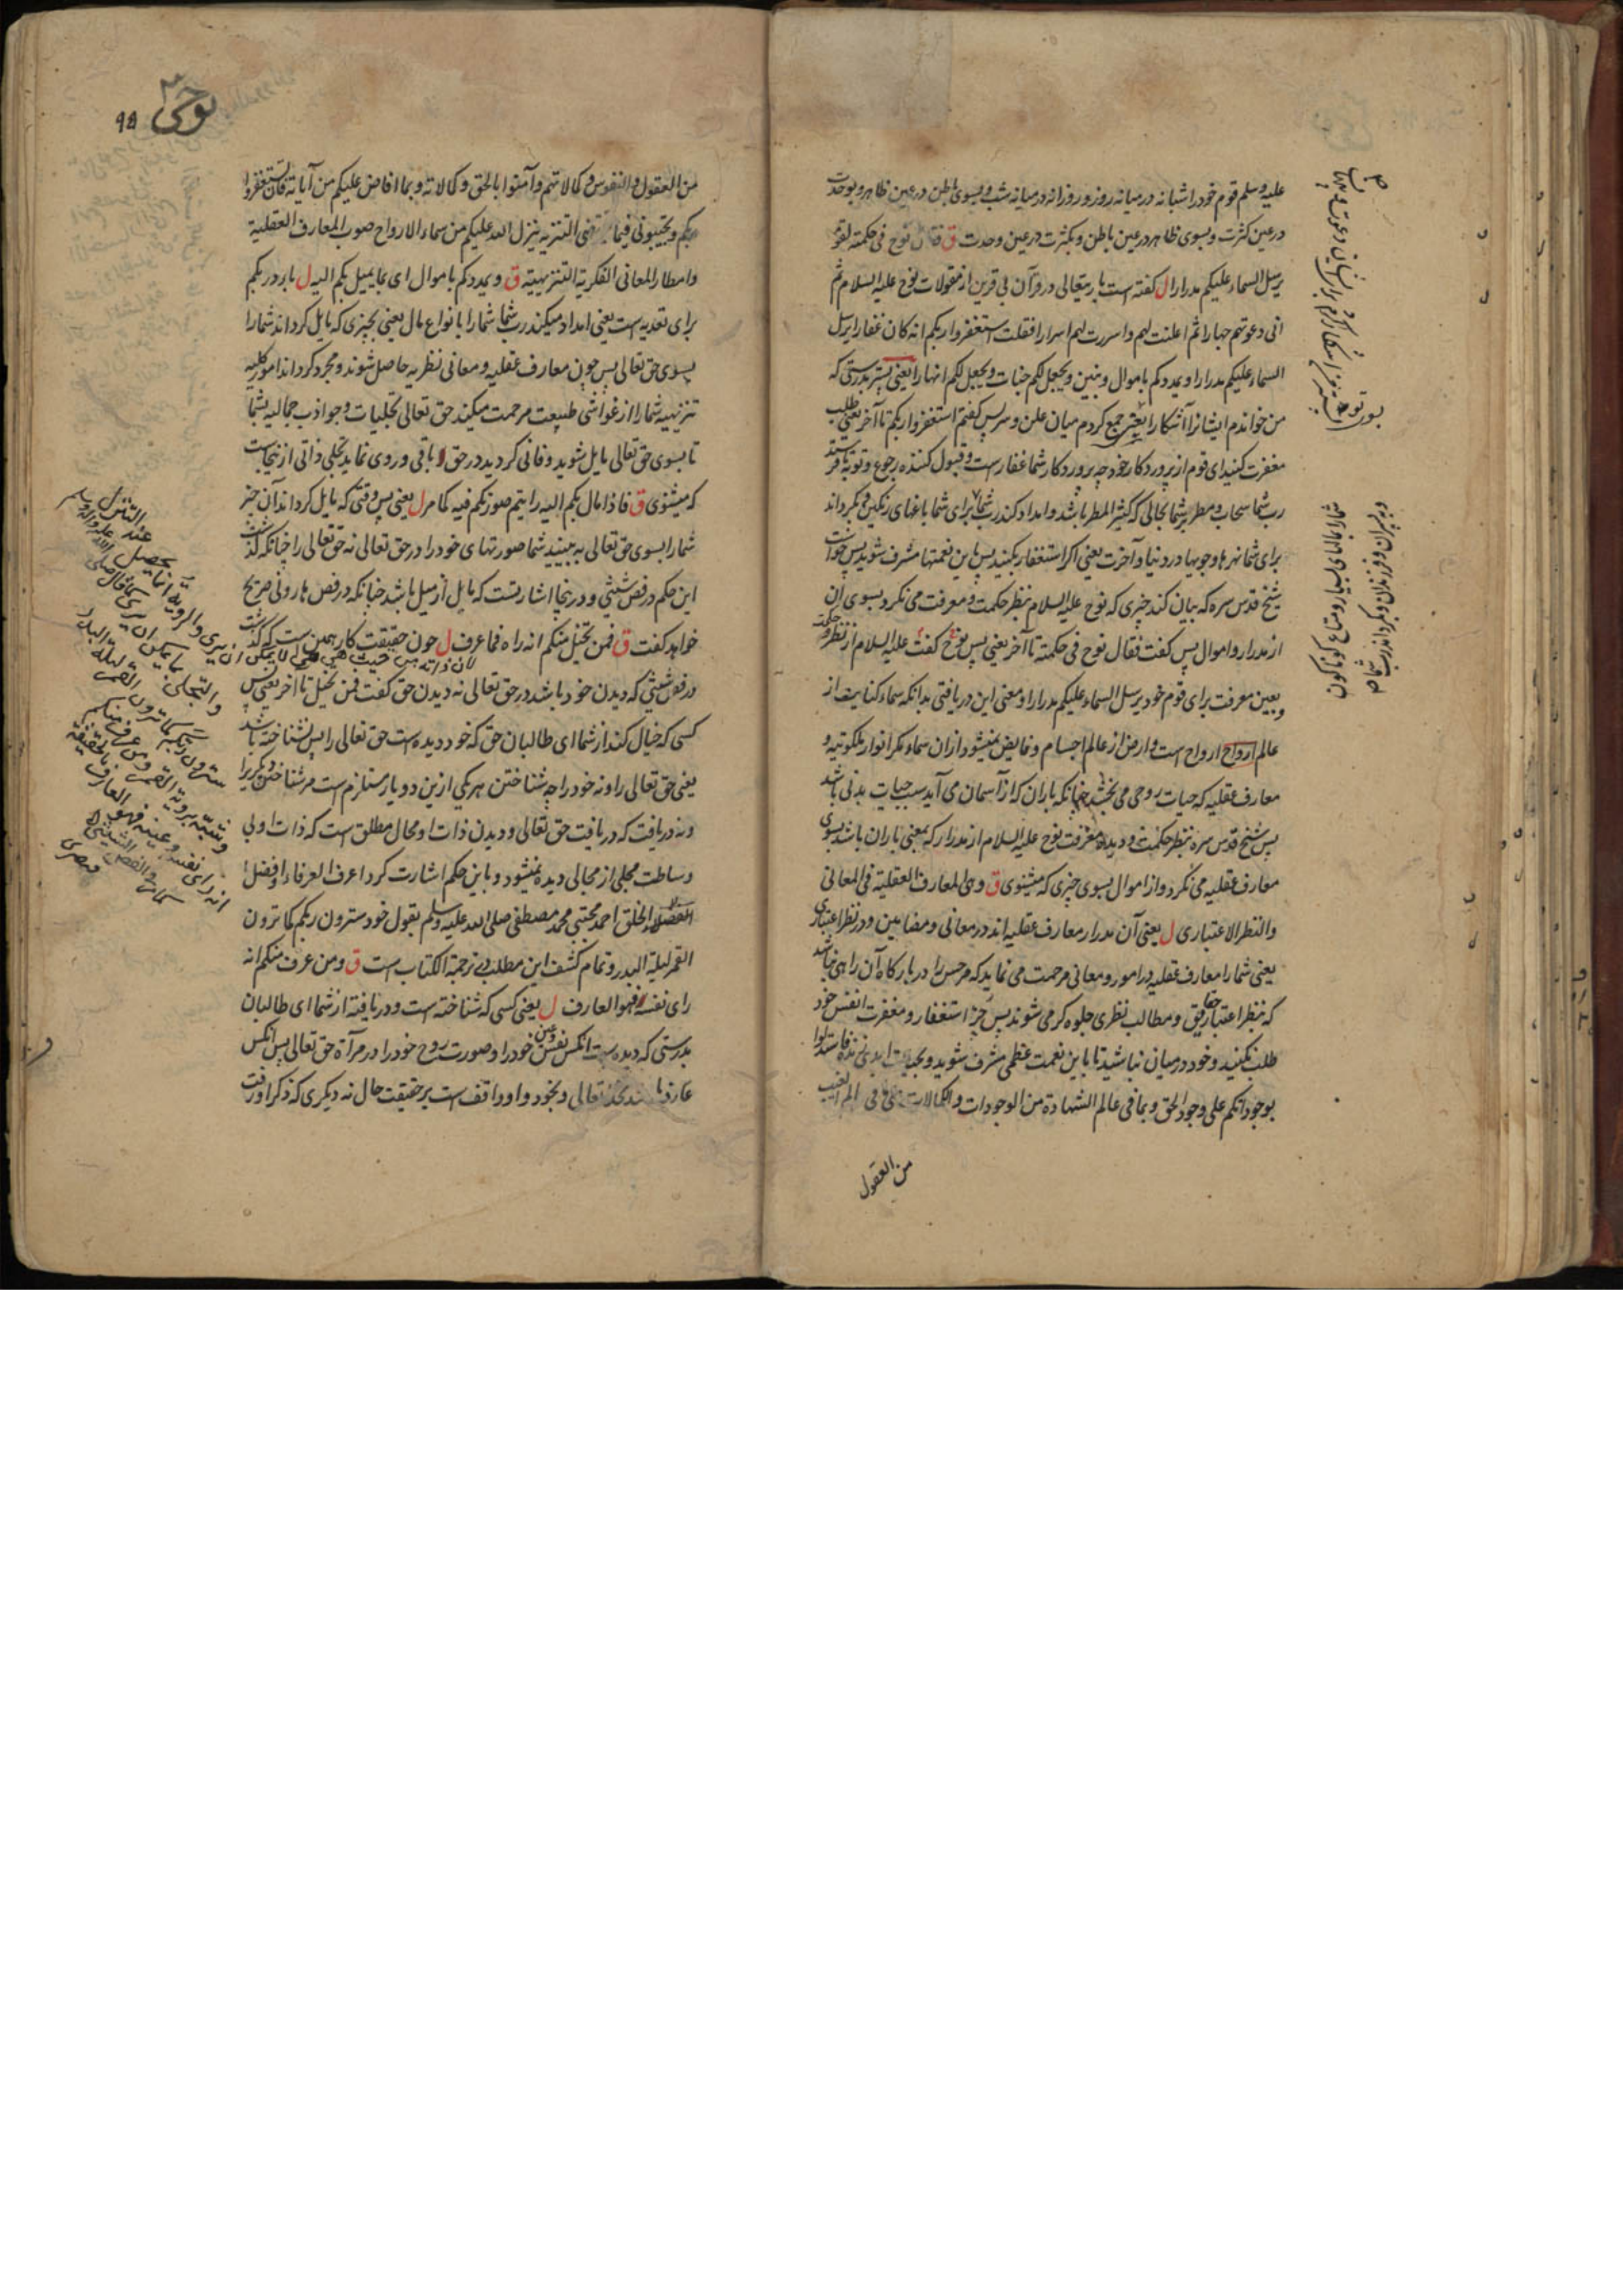 علیه وسلم قوم خود را شبانه در میانه روز و روزانه در میانه شب و بسوی باطن در عین ظاهر و بوحدت
در عین کثرت و بسوی ظاهر در عین باطن و بکثرت در عین وحدت ق فقال نوح فی حکمته لقومه
یرسل السماء علیکم مدرارا ل گفته است باریتعالی در قرآن بی قرین از مقولات نوح علیه السلام ثم
انی دعوتهم جهارا ثم اعلنت لهم واسررت لهم اسرارا فقلت استغفروا ربکم انه کان غفارا یرسل
السماء علیکم مدرارا ویمددکم باموال وبنین ویجعل لکم جنات ویجعل لکم انهارا یعنی پستر بدرستی که
من خواندم ایشانرا آشکارا یعنی جمع کردم میان علن و سر پس گفتم استغفروا ربکم تا آخر یعنی طلب
مغفرت کنید ای قوم از پروردکار خود چه پروردکار شما غفار است و قبول کننده رجوع و توبه تا فرستد
رب شما سحاب و مطر بر شما بحالی که کثیر المطر باشد و امداد کند رب شما برای شما باغهای رنکین و بکرداند
برای شما نهرها و جویها در دنیا و آخرت یعنی اکر استغفار بکنید پس باین نعمتها مشرف شوید پس خواست
شیخ قدس سره که بیان کند چیزی که نوح علیه السلام بنظر حکمت و معرفت می نکرد بسوی آن
از مدرار و اموال پس گفت فقال نوح فی حکمته تا آخر یعنی پس نوح گفت علیه السلام از نظر حکمت
وبعین معرفت برای قوم خود یرسل السماء علیکم مدرارا و معنی این دریافتی بدانکه سماء کنایت از
عالم ارواح است و ارض از عالم اجسام و فایض میشود از آن سماء مکر انوار ملکوتیه و
معارف عقلیه که حیات روحی می بخشد چنانکه باران که از آسمان می آید سبب حیات بدنی باشد
پس شیخ قدس سره بنظر حکمت و دیده معرفت نوح علیه السلام از مدرار که بمعنی باران باشد بسوی
معارف عقلیه می نکرد و از اموال بسوی چیزی که میشنوی ق وهی المعارف العقلیة فی المعانی
والنظر الاعتباری ل یعنی آن مدرار معارف عقلیه اند در معانی و مضامین و در نظر اعتباری
یعنی شما را معارف عقلیه در امور و معانی مرحمت می نماید که مر حس را در بارکاه آن راهی نباشد
که بنظر اعتبار حقایق و مطالب نظری جلوه کر می شوند پس چرا استغفار و مغفرت انفس خود
طلب نکنید و خود در میان نباشید تا باین نعمت عظمی مشرف شوید و بحیات ابدی زنده فاستدلوا
بوجوداتکم علی وجود الحق وبما فی عالم الشهادة من الوجودات والکمالات علی ما فی عالم الغیب
من العقول
نوحی
۹۵
من العقول والنفوس وکمالاتهم وآمنوا بالحق وکمالاته وبما افاض علیکم من آیاته فان تستغفروا
ربکم وتجیبونی فیما یقتضی التنزیه ینزل الله علیکم من سماء الارواح صوب المعارف العقلیة
وامطار المعانی الفکریة التنزیهیة ق ویمددکم باموال ای بما یمیل بکم الیه ل باء در بکم
برای تعدیه است یعنی امداد میکند رب شما شما را بانواع مال یعنی بچیزی که مایل کرداند شما را
بسوی حق تعالی پس چون معارف عقلیه و معانی نظریه حاصل شوند و مجرد کرداند امور کلیه
تنزیهیه شما را از غواشی طبیعت مرحمت میکند حق تعالی تجلیات و جواذب جمالیه بشما
تا بسوی حق تعالی مایل شوید و فانی کردید در حق و باقی و روی نماید تجلی ذاتی از نجاست
که میشنوی ق فاذا مال بکم الیه رایتم صورتکم فیه کما مر ل یعنی پس وقتی که مایل کرداند آن چیز
شما را بسوی حق تعالی به بینید شما صورتهای خود را در حق تعالی نه حق تعالی را چنانکه گذشت
این حکم در فص شیثی و درینجا اشارتست که مایل از میل باشد چنانکه در فص هارونی صریح
خواهد گفت ق فمن تخیل منکم انه راه فما عرف ل چون حقیقت کار همین است که گذشت
در فص شیثی که دیدن خود باشد در حق تعالی نه دیدن حق گفت فمن تخیل تا آخر یعنی پس
کسی که خیال کند از شما ای طالبان حق که خود دیده است حق تعالی را پس نشناخته باشد
یعنی حق تعالی را و نه خود را چه شناختن هر یکی ازین دو یار مستلزم است مر شناختن دیگریرا
و نه دریافت که دریافت حق تعالی و دیدن ذات او محال مطلق است که ذات او بی
وساطت مجلی از مجالی دیده نمیشود و باین حکم اشارت کرد اعرف العرفاء و افضل
الفضلاء الخلق احمد مجتبی محمد مصطفی صلی الله علیه وسلم بقول خود سترون ربکم کما ترون
القمر لیلة البدر و تمام کشف این مطلب در ترجمة الکتاب است ق ومن عرف منکم انه
رای نفسه فهو العارف ل یعنی کسی که شناخته است و دریافته از شما ای طالبان
بدرستی که دیده است آنکس نفس و عین خود را و صورت روح خود را در مرآة حق تعالی پس آنکس
عارف باشد بحق تعالی و بخود و او واقف است بر حقیقت حال نه دیگری که ذکر او رفت
لان ذاته من حیث هی هی لا یمکن ان یری والرویة انما یحصل عند التنزل
والتجلی بما یمکن ان یری کما قال صلی الله علیه واله وسلم
سترون ربکم کما ترون القمر لیلة البدر
وشبه برویة القمر ومن عرف منکم
انه رای نفسه وعینه فهو العارف بالحقیقة
کما مر فی الفص الشیثی